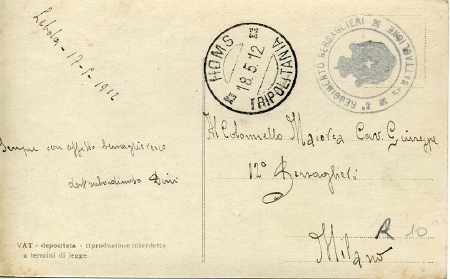 Lebda - 17-5-1912
HOMS
18.5.12
TRIPOLITANIA
REGGIMENTO BERSAGLIERI
Sempre con affetto bersaglieresco
Al Colonnello Cav. Giuseppe
12° Bersaglieri
Milano
R 10
VAT - depositata - riproduzione interdetta
a termini di legge